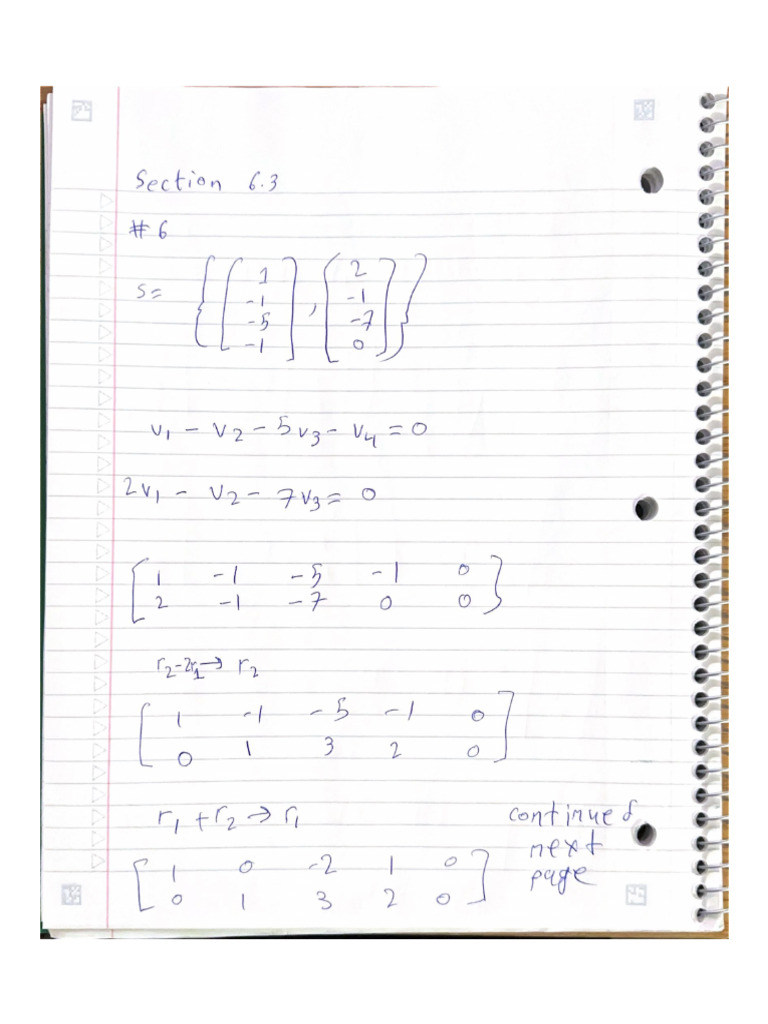 Section 6.3
#6
S= { [ 1 -1 -5 -1 ] , [ 2 -1 -7 0 ] }
v1 - v2 - 5v3 - v4 = 0
2v1 - v2 - 7v3 = 0
[ 1 -1 -5 -1 0
2 -1 -7 0 0 ]
r2-2r1→ r2
[ 1 -1 -5 -1 0
0 1 3 2 0 ]
r1 + r2 → r1
[ 1 0 -2 1 0
0 1 3 2 0 ]
continued
next
page